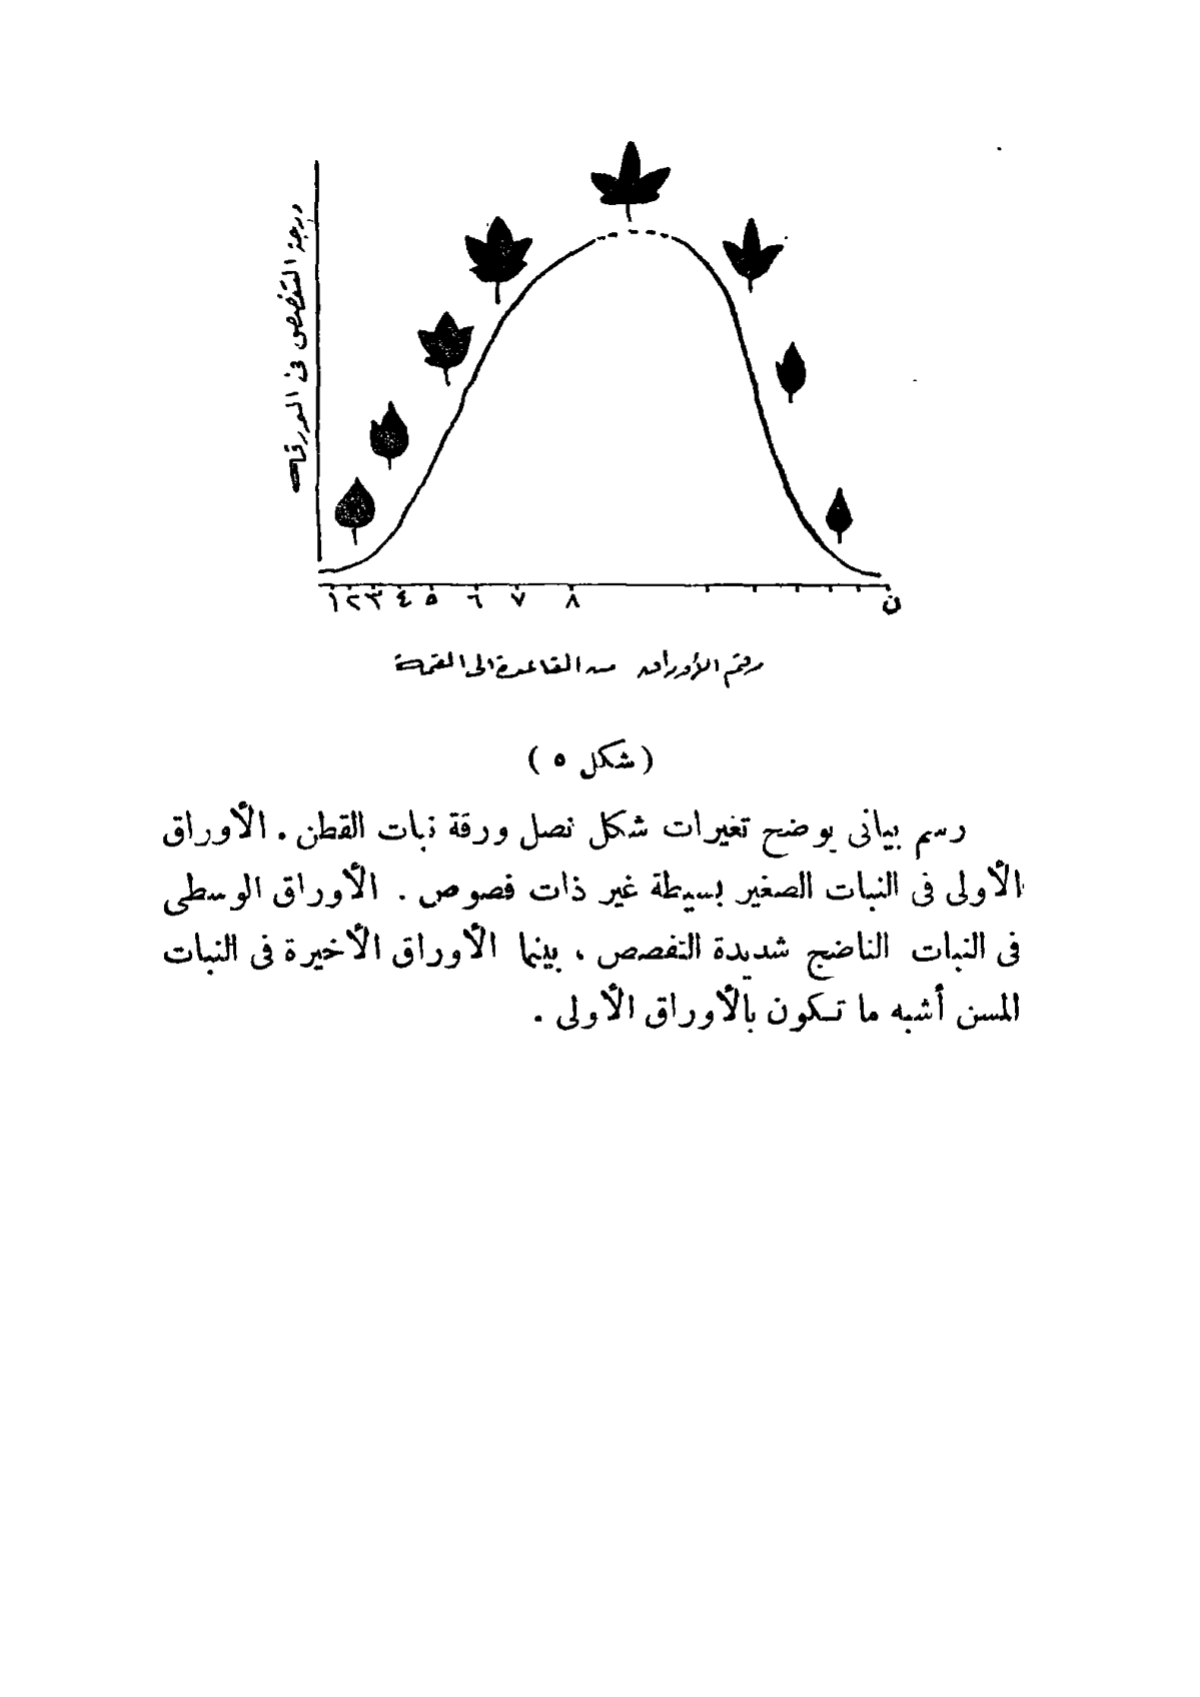 درجة التفصص فى الورقة
١ ٢ ٣ ٤ ٥ ٦ ٧ ٨ ن
رقم الأوراق من القاعدة الى القمة
( شكل ٥ )
رسم بيانى يوضح تغيرات شكل نصل ورقة نبات القطن . الأوراق
الأولى فى النبات الصغير بسيطة غير ذات فصوص . الأوراق الوسطى
فى النبات الناضج شديدة التفصص ، بينما الأوراق الأخيرة فى النبات
المسن أشبه ما تكون بالأوراق الأولى .